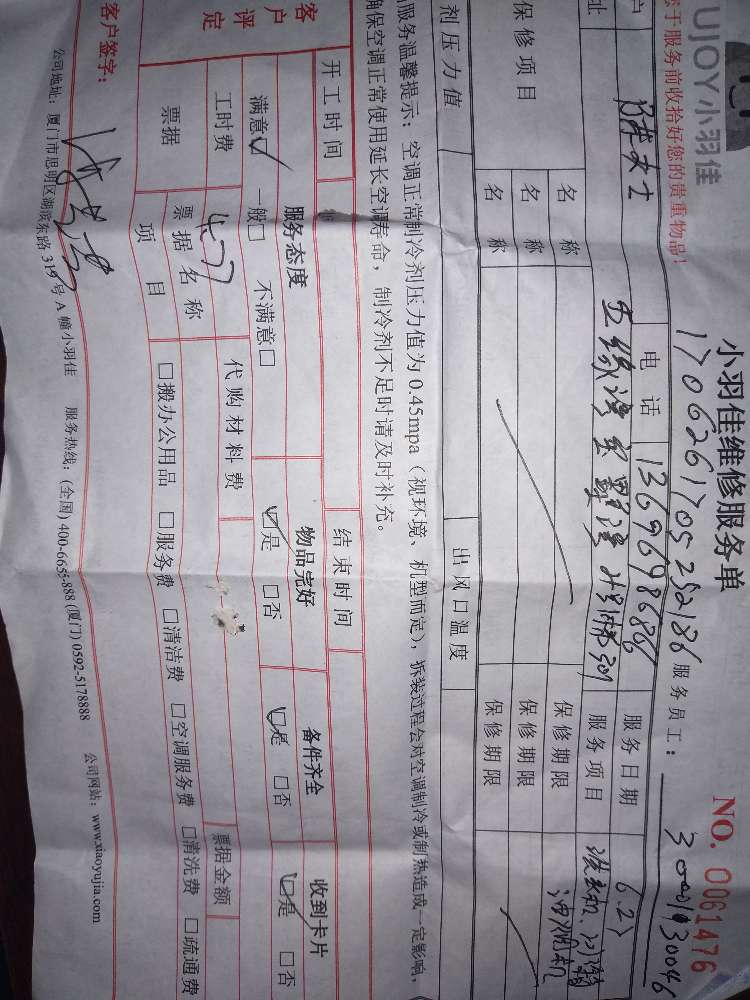 UJOY小羽佳
小羽佳维修服务单
NO. 0061476
您于服务前收拾好您的贵重物品!
1706261705252186
服务员工:
30001930046
户
女士
电话
13696986886
服务日期
6.27
址
五缘湾
服务项目
洗衣机、冰箱
油烟机
保修项目
名称
保修期限
名称
保修期限
名称
保修期限
剂压力值
出风口温度
服务温馨提示:空调正常制冷剂压力值为0.45mpa(视环境、机型而定),拆装过程会对空调制冷或制热造成一定影响,
确保空调正常使用延长空调寿命,制冷剂不足时请及时补充。
开工时间
结束时间
客户评定
服务态度
物品完好
备件齐全
收到卡片
满意☑ 一般□ 不满意□
☑是 □否
☑是 □否
☑是 □否
工时费
477
代购材料费
票据金额
票据
票据名称
项目
□搬办公用品 □服务费 □清洁费 □空调服务费 □清洗费 □疏通费
客户签字:
公司地址:厦门市思明区湖滨东路319号A幢小羽佳 服务热线:(全国)400-6655-888(厦门)0592-5178888 公司网站:www.xiaoyujia.com